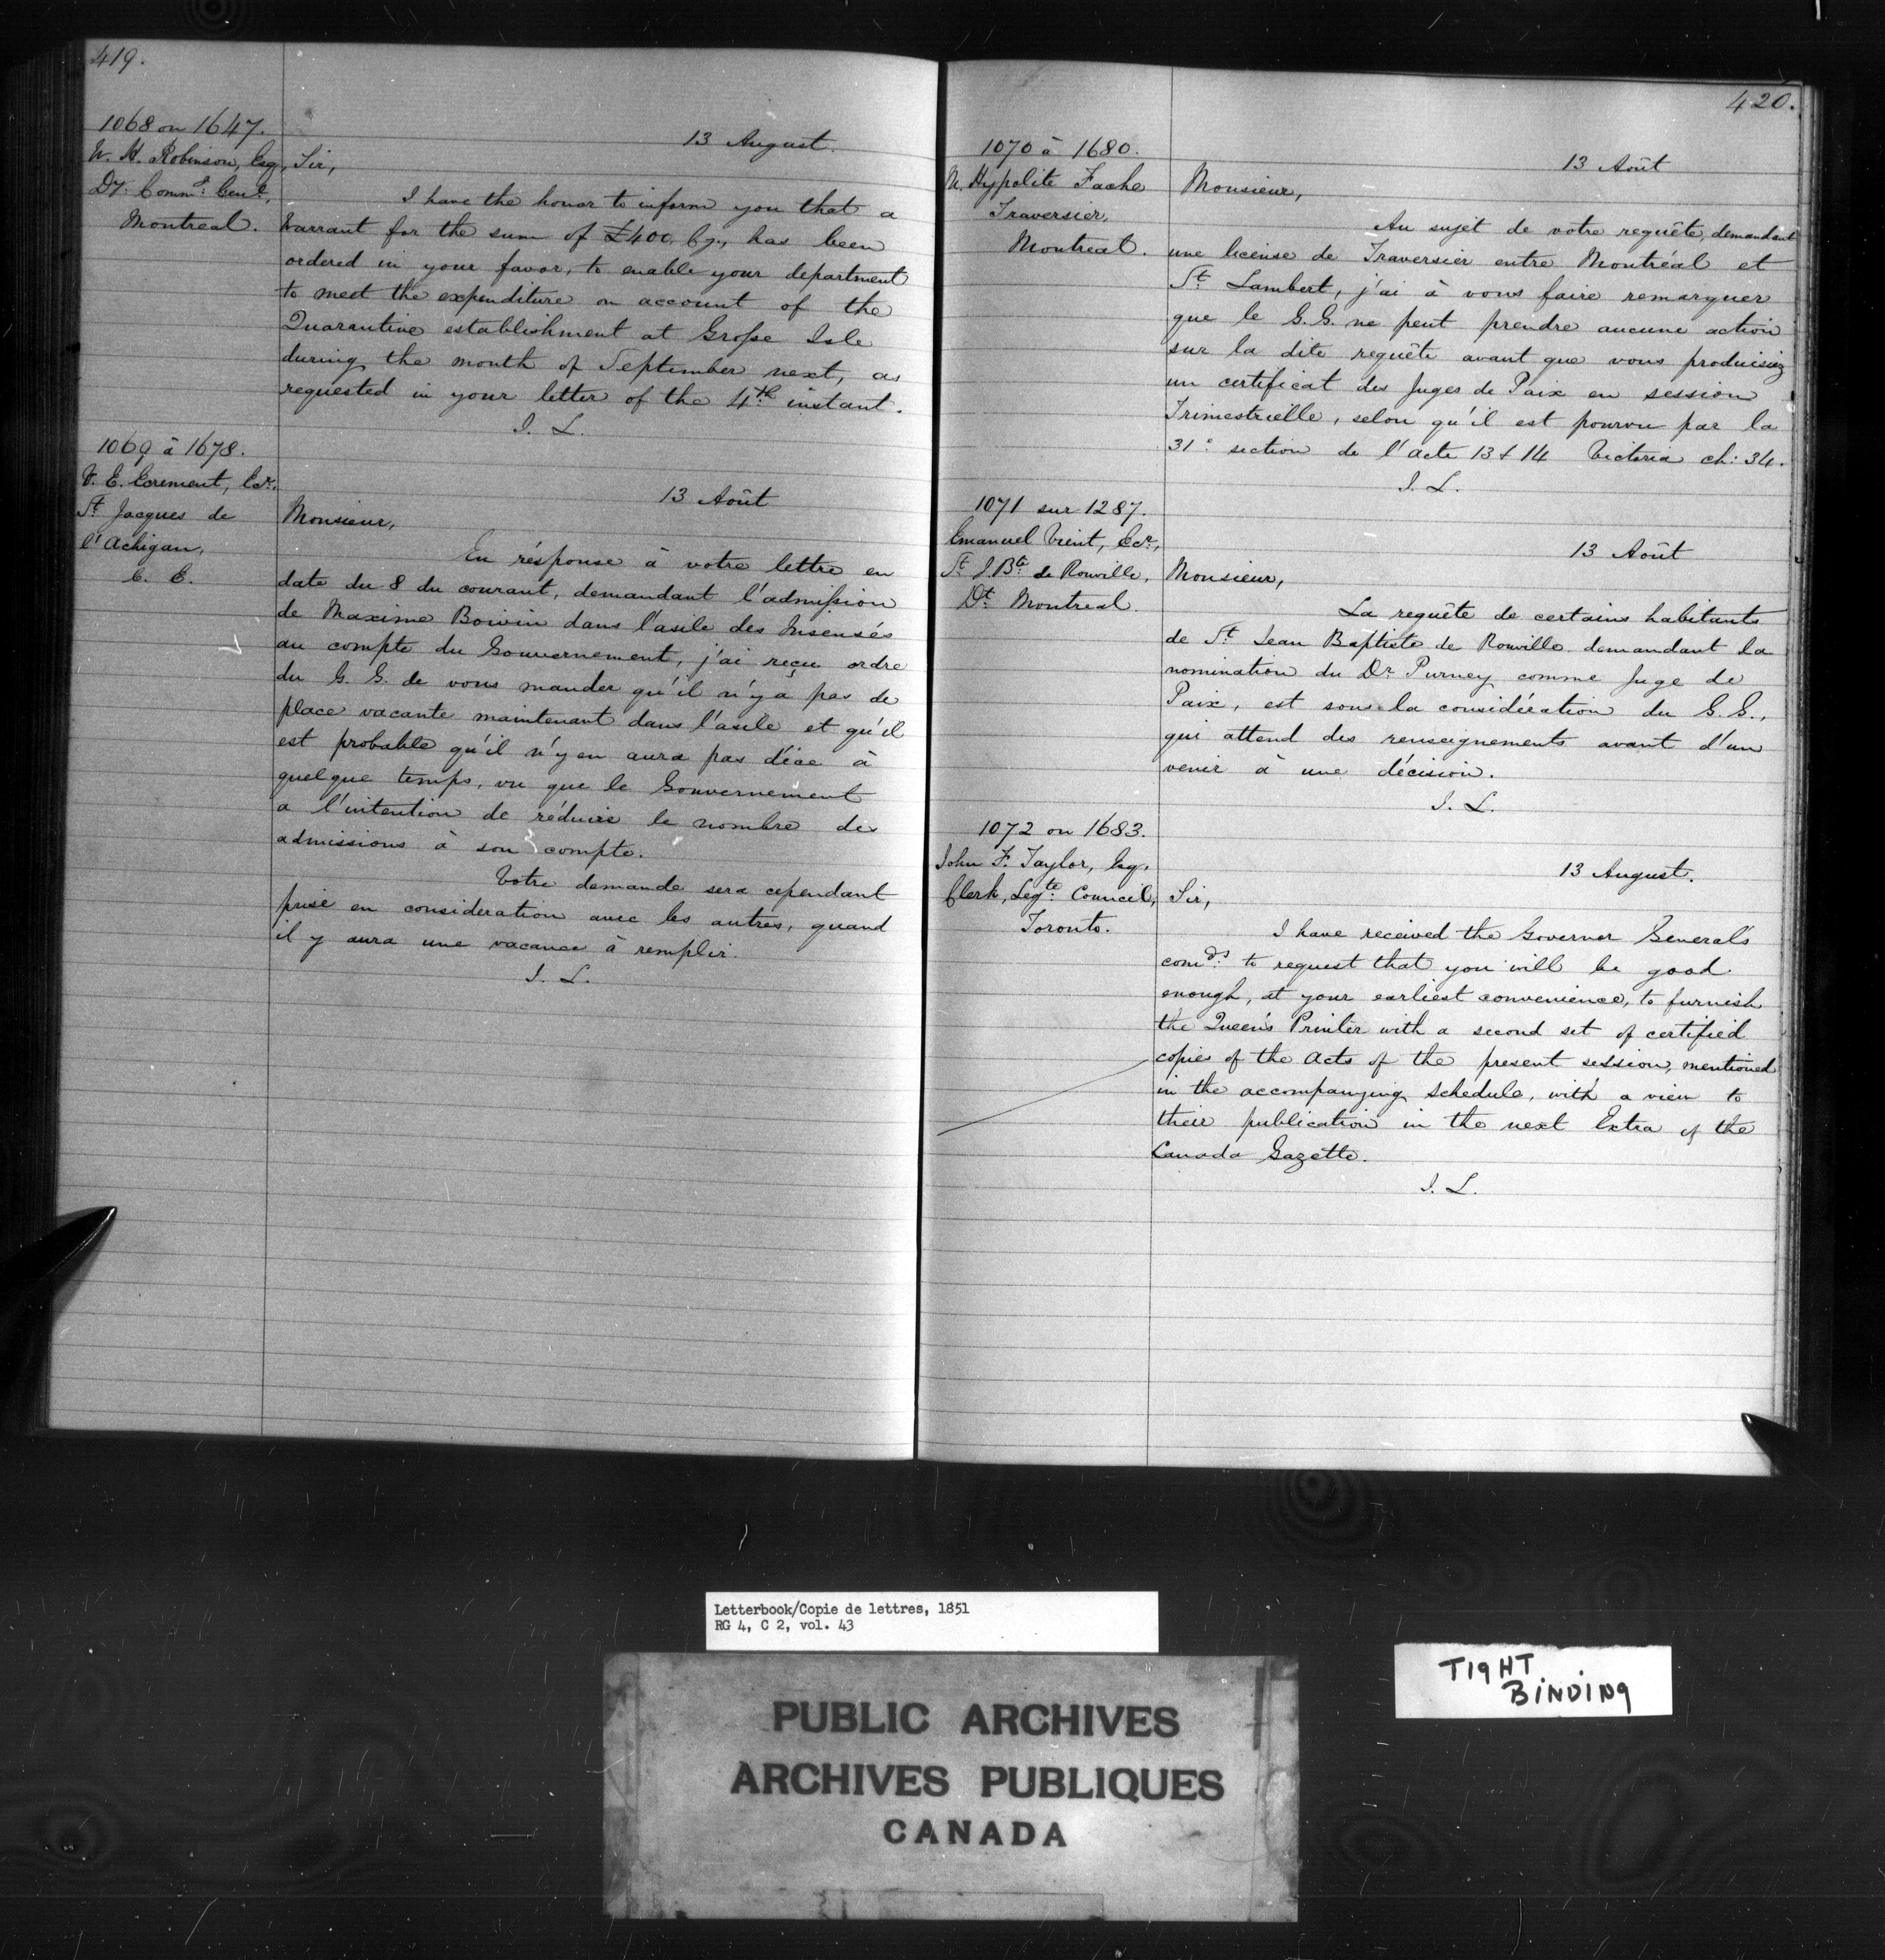 419.
1068 on 1647.
W. H. Robinson, Esq,
Dy. Comm.y Genl.,
Montreal.
13 August.
Sir,
I have the honor to inform you that a
Warrant for the sum of £400. Cy., has been
ordered in your favor, to enable your department
to meet the expenditure on account of the
Quarantine establishment at Grosse Isle
during the month of September next, as
requested in your letter of the 4th instant.
J. L.
1069 à 1678.
St Jacques de
l'Achigan,
C. E.
13 Août
Monsieur,
En réponse à votre lettre en
date du 8 du courant, demandant l'admission
de Maxime Boivin dans l'asile des Insensés
au compte du Gouvernement, j'ai reçu ordre
du G. G. de vous mander qu'il n'y a pas de
place vacante maintenant dans l'asile et qu'il
est probable qu'il n'y en aura pas d'ice à
quelque temps, vu que le Gouvernement
a l'intention de réduire le nombre des
admissions à son compte.
Votre demande sera cependant
prise en consideration avec les autres, quand
il y aura une vacance à remplir.
J. L.
420.
1070 à 1680.
M. Hypolite
Traversier,
Montreal.
13 Août
Monsieur,
Au sujet de votre requête, demandant
une license de Traversier entre Montréal et
St. Lambert, j'ai à vous faire remarquer
que le G. G. ne peut prendre aucune action
sur la dite requête avant que vous produisiez
un certificat des Juges de Paix en session
Trimestrielle, selon qu'il est pourvu par la
31e section de l'acte 13 & 14 Victoria ch: 34.
J. L.
1071 sur 1287.
Emanuel Vient, Ecr.,
St J. Bte de Rouville,
Dt. Montreal.
13 Août
Monsieur,
La requête de certains habitants
de St Jean Baptiste de Rouville demandant la
nomination du Dr. Purney comme Juge de
Paix, est sous la considération du G. G.,
qui attend des renseignements avant d'un
venir à une décision.
J. L.
1072 on 1683.
John F. Taylor, Esq.
Clerk, Legte. Council,
Toronto.
13 August.
Sir,
I have received the Governor General's
comds. to request that you will be good
enough, at your earliest convenience, to furnish
the Queen's Printer with a second set of certified
copies of the Acts of the present session, mentioned
in the accompanying schedule, with a view to
their publication in the next Extra of the
Canada Gazette.
J. L.
Letterbook/Copie de lettres, 1851
RG 4, C 2, vol. 43
TIGHT
BINDING
PUBLIC ARCHIVES
ARCHIVES PUBLIQUES
CANADA